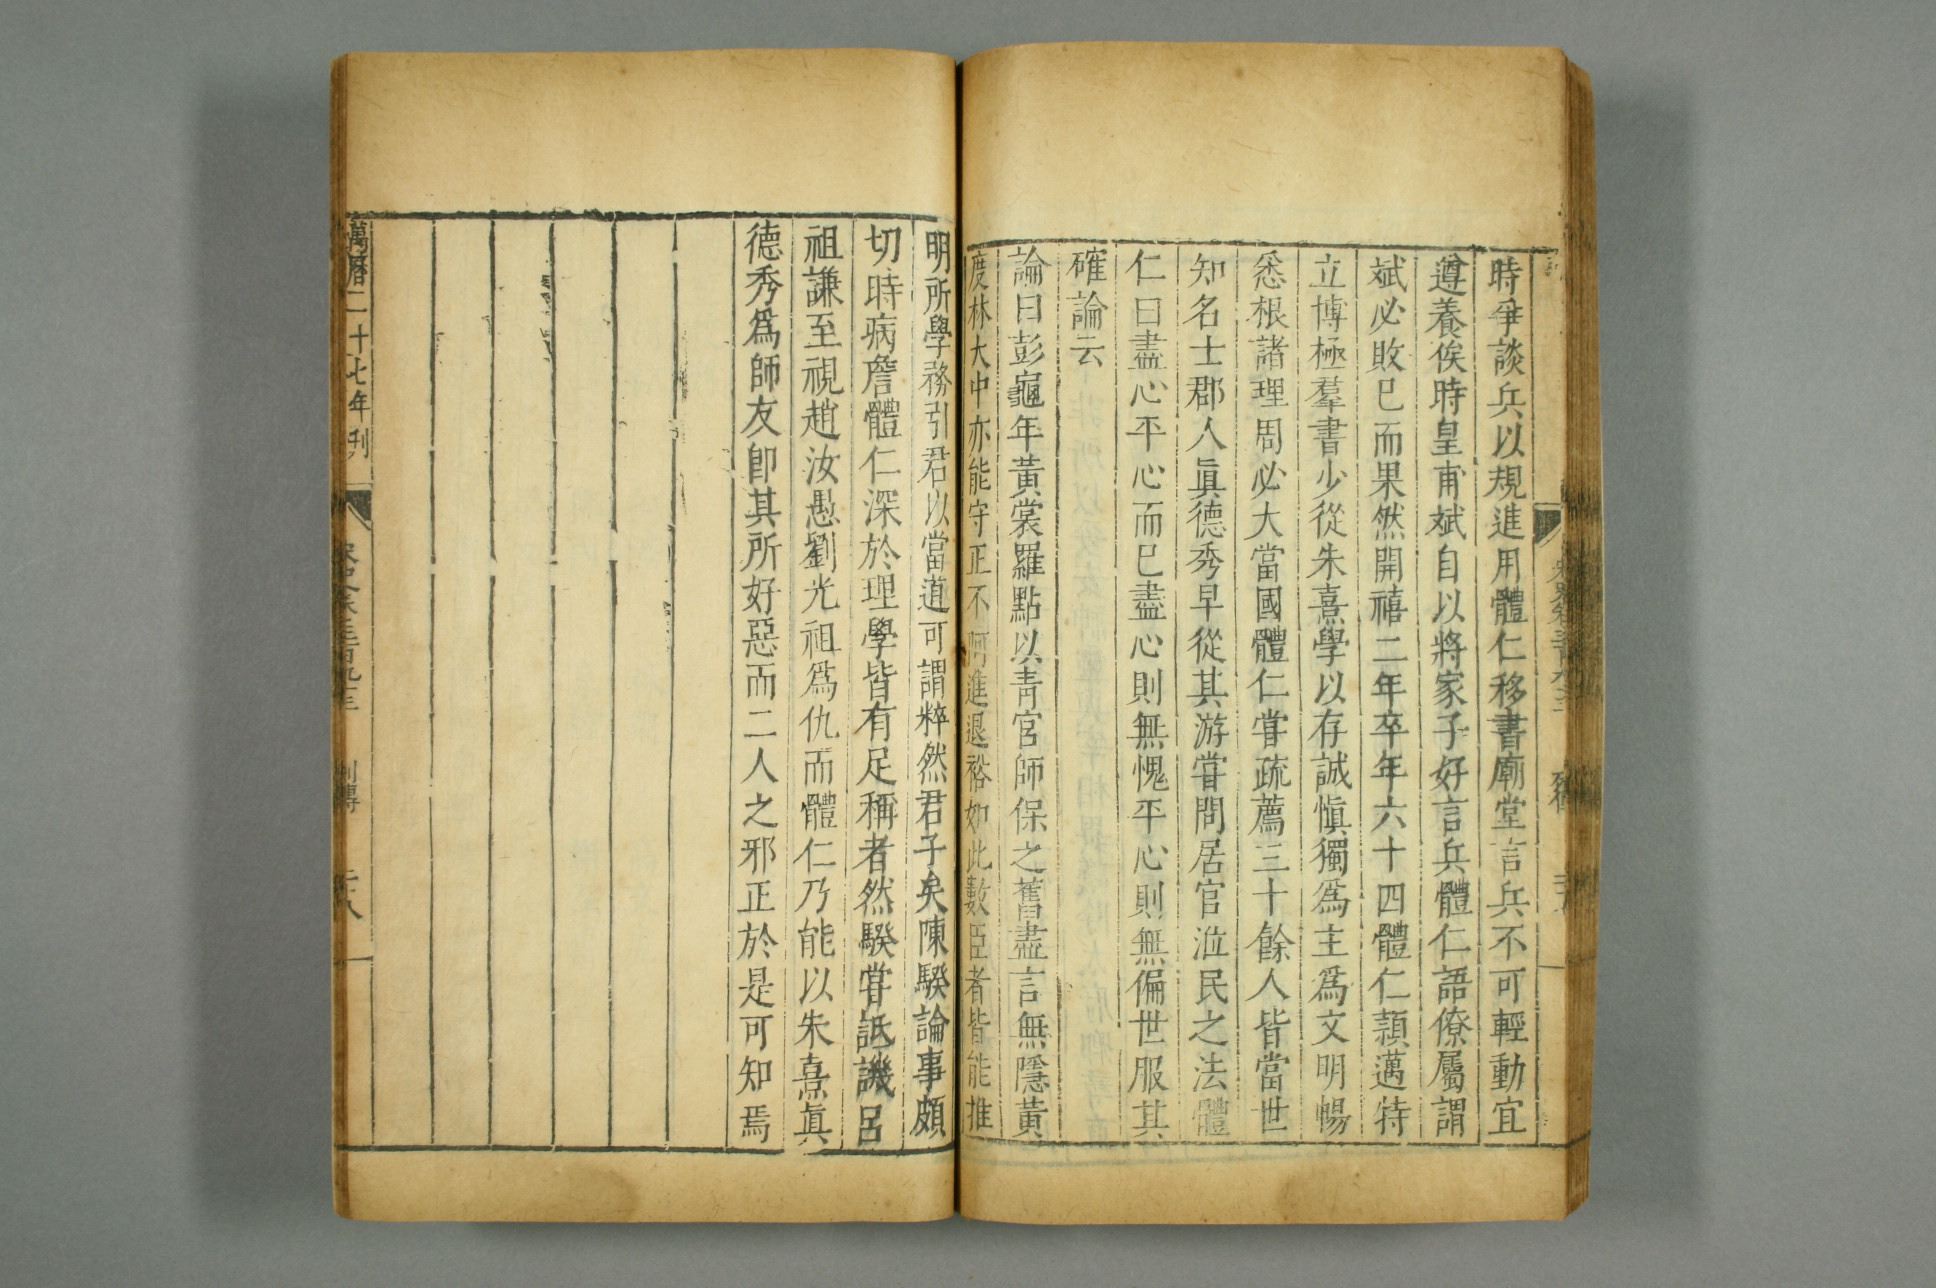 時爭談兵以規進用體仁移書廟堂言兵不可輕動宜
遵養俟時皇甫斌自以將家子好言兵體仁語僚屬謂
斌必敗已而果然開禧二年卒年六十四體仁穎邁特
立博極羣書少從朱熹學以存誠愼獨爲主爲文明暢
悉根諸理周必大當國體仁甞疏薦三十餘人皆當世
知名士郡人眞德秀早從其游甞問居官涖民之法體
仁曰盡心平心而已盡心則無愧平心則無偏世服其
確論云
論曰彭龜年黃裳羅點以靑宮師保之舊盡言無隱黃
度林大中亦能守正不阿進退裕如此數臣者皆能推
明所學務引君以當道可謂粹然君子矣陳騤論事頗
切時病詹體仁深於理學皆有足稱者然騤甞詆譏呂
祖謙至視趙汝愚劉光祖爲仇而體仁乃能以朱熹眞
德秀爲師友卽其所好惡而二人之邪正於是可知焉
萬曆二十七年刊
宋史卷三百九十三 列傳 二十八